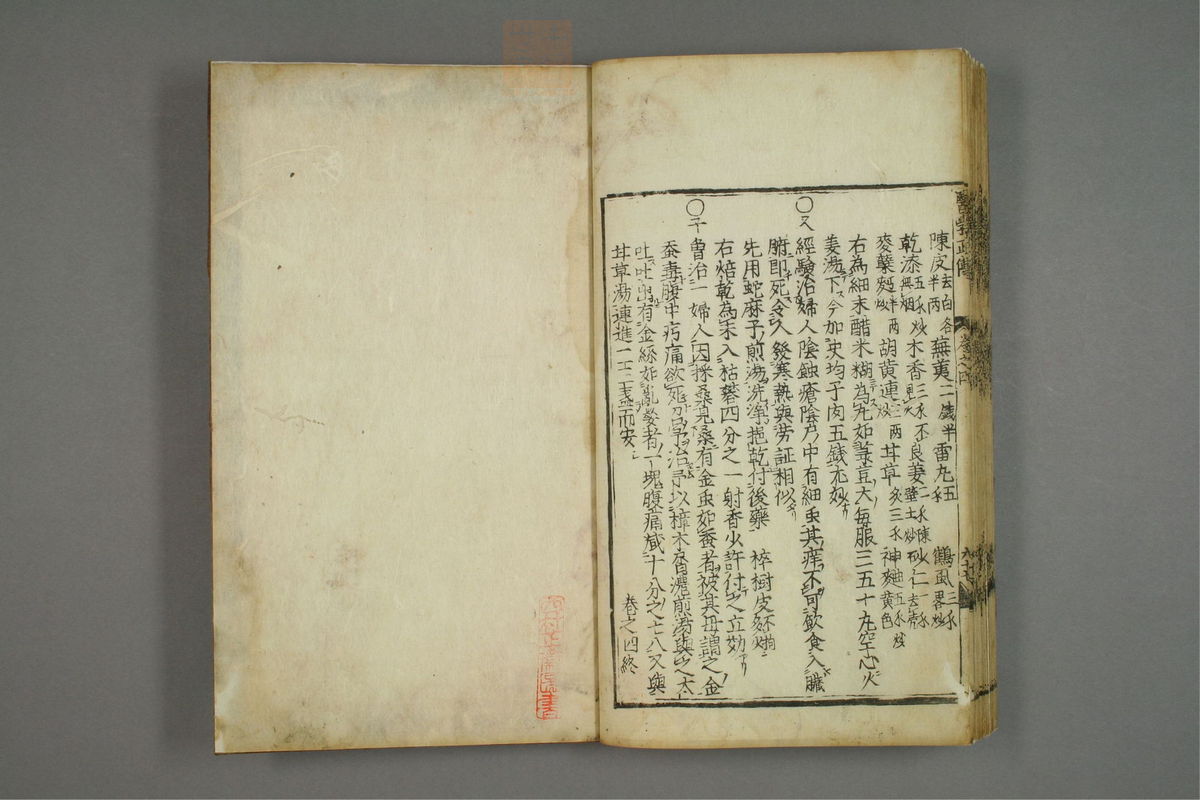 醫学正傳 卷之四
陳皮去白各半兩 蕪荑二銭半 雷丸五 鶴虱二 畧炒
乾漆五 炒無烟 木香三 不見火 良姜二 陳壁土炒 砂仁一 去壳
麥蘖麪炒半兩 胡黄連炒三兩 甘草炙三 神麯五 炒黄色
右為細末醋米糊為丸如菉豆大每服三五十丸空心火
姜湯下今加史均子肉五銭尤妙
○又經驗治婦人陰蝕瘡陰戸中有細虫其痒不可飲食入臓
腑即死令人發寒熱與労証相似
先用蛇麻子煎湯洗浄拖乾付後藥 梓樹皮不拘多少
右焙乾為末入枯礬四分之一射香少許付之立効
○予曽治一婦人因採桑見桑有金虫如蚕者被其毋謂之金
蚕毒腹中疞痛欲死召予治予以樟木屑濃煎湯與之大
吐吐出有金絲如乱髪者一塊腹痛減十分之七八又與
甘草湯連進一二盞而安
卷之四終